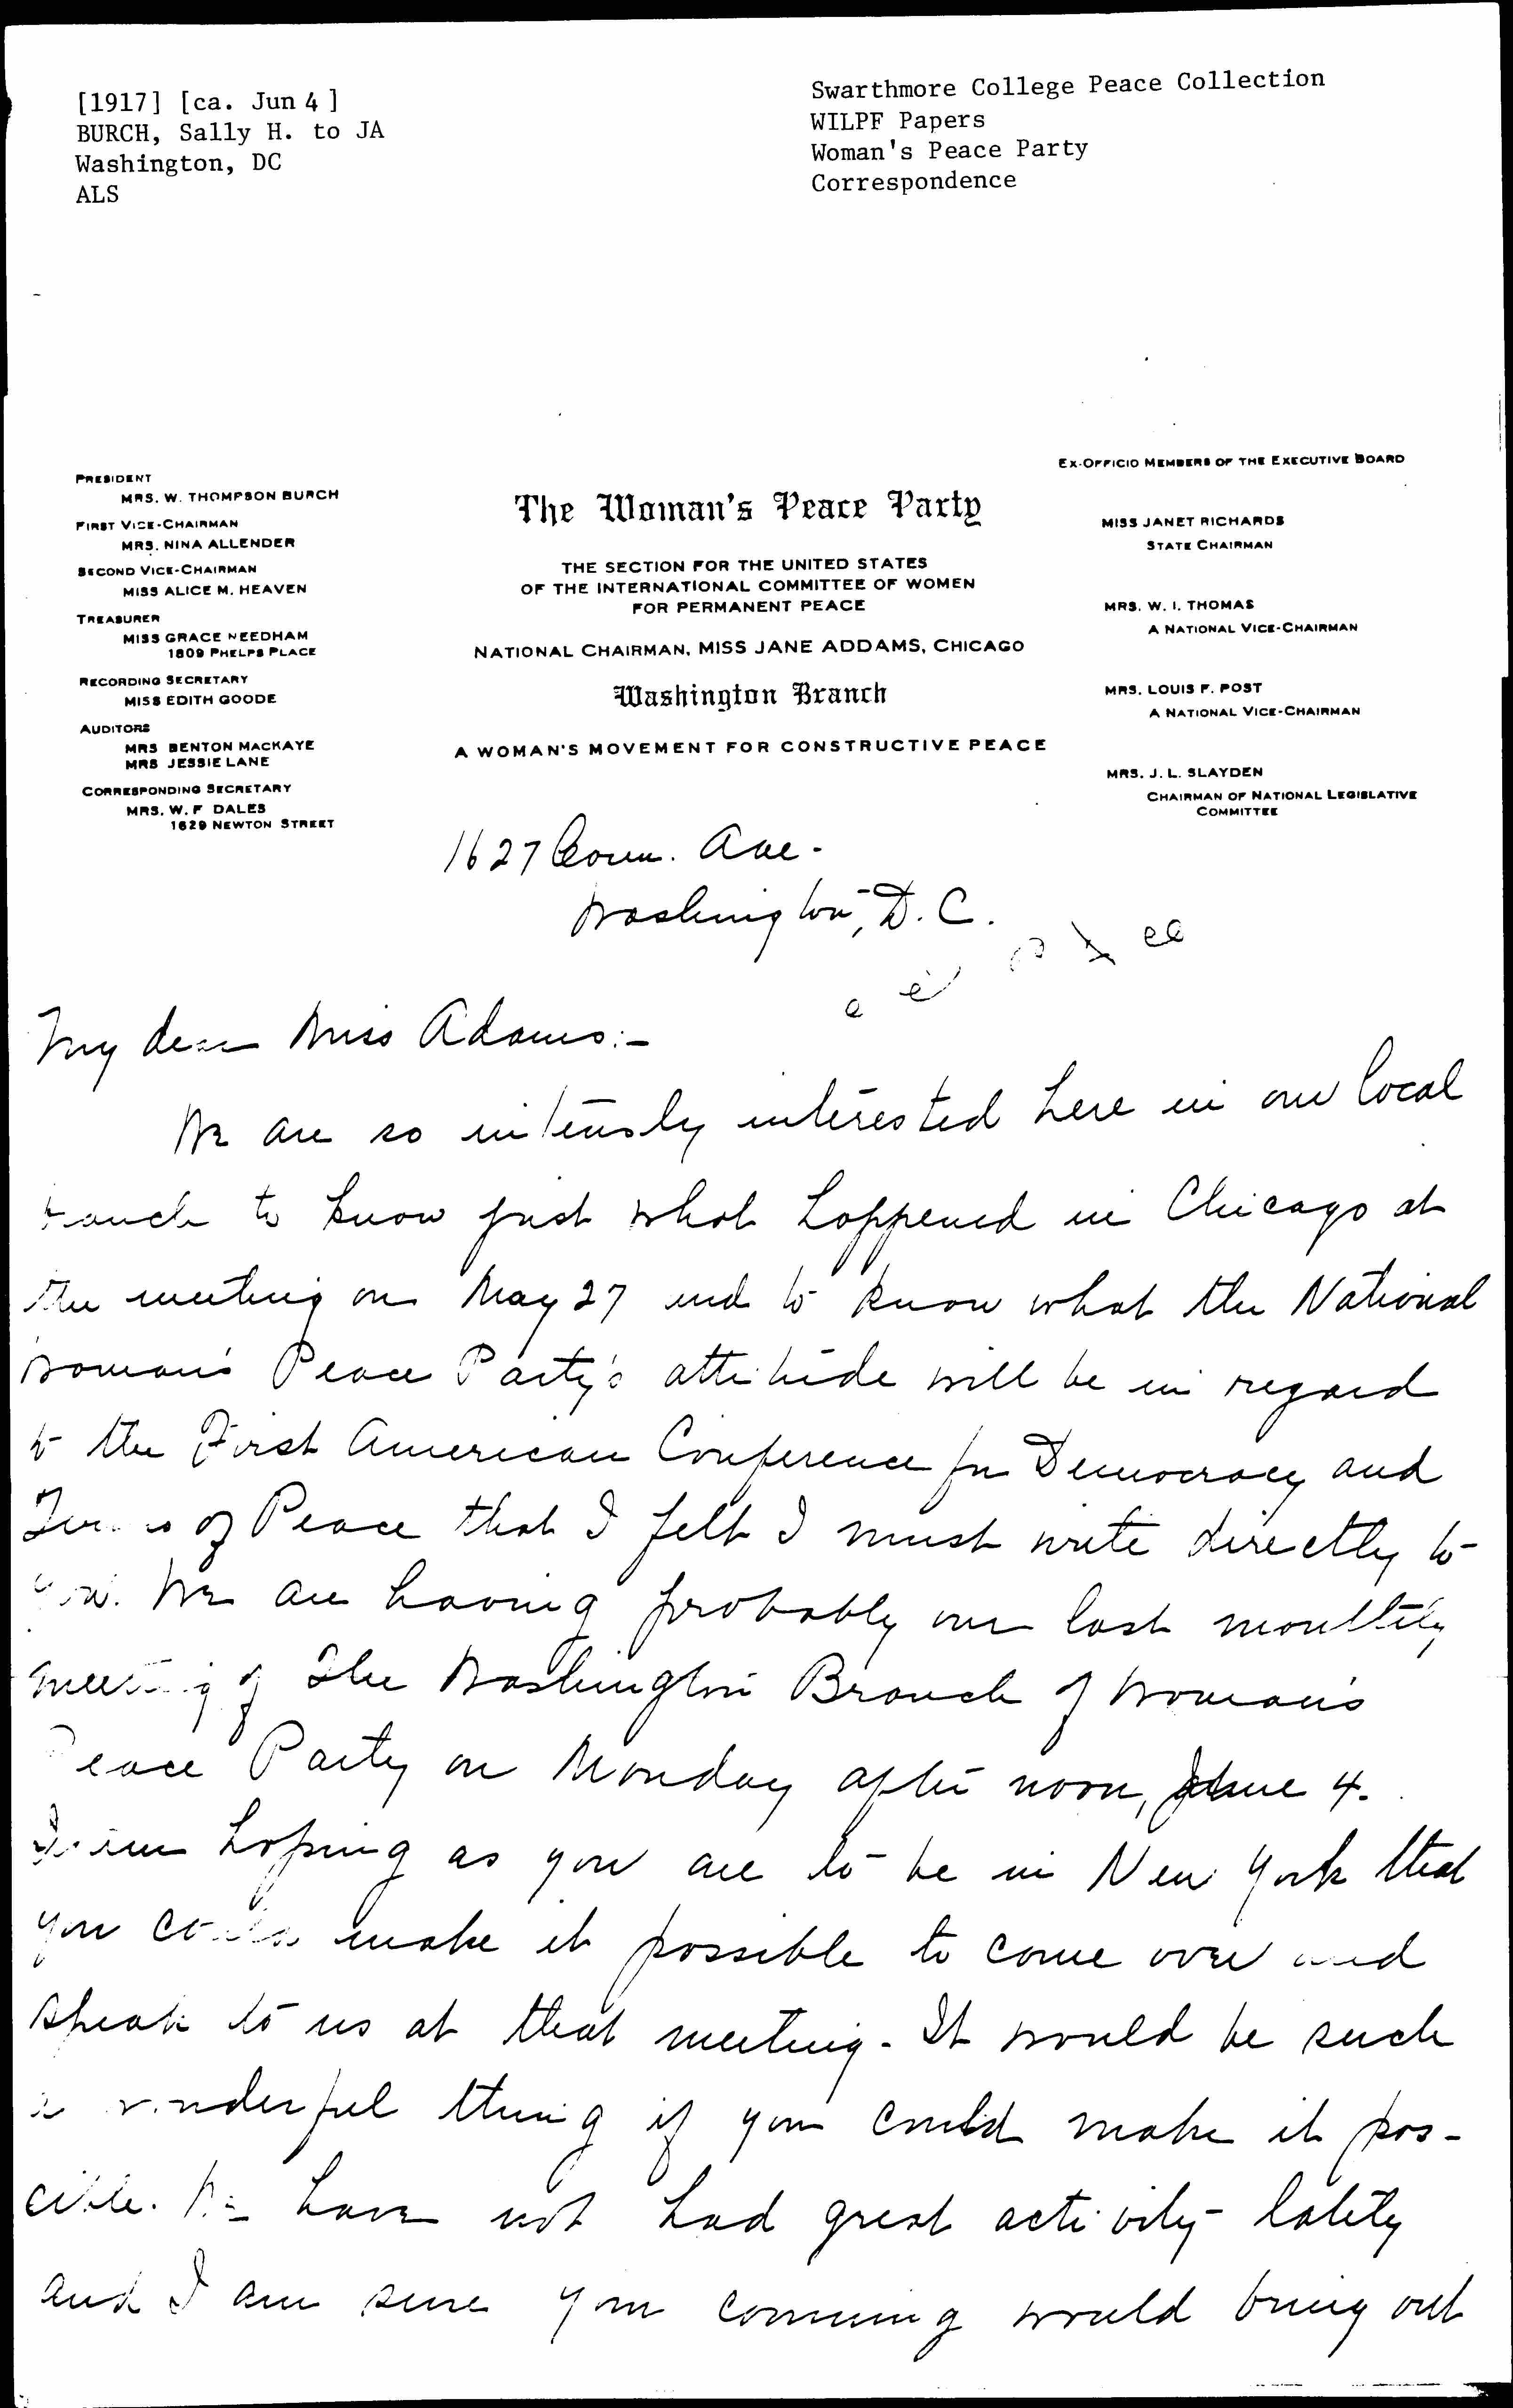 [1917] [ca. Jun 4 ]
BURCH, Sally H. to JA
Washington, DC
ALS
Swarthmore College Peace Collection
WILPF Papers
Woman's Peace Party
Correspondence
PRESIDENT
MRS. W. THOMPSON BURCH
FIRST VICE-CHAIRMAN
MRS. NINA ALLENDER
SECOND VICE-CHAIRMAN
MISS ALICE M. HEAVEN
TREASURER
MISS GRACE NEEDHAM
1809 PHELPS PLACE
RECORDING SECRETARY
MISS EDITH GOODE
AUDITORS
MRS BENTON MACKAYE
MRS JESSIE LANE
CORRESPONDING SECRETARY
MRS. W. F DALES
1629 NEWTON STREET
The Woman's Peace Party
THE SECTION FOR THE UNITED STATES
OF THE INTERNATIONAL COMMITTEE OF WOMEN
FOR PERMANENT PEACE
NATIONAL CHAIRMAN, MISS JANE ADDAMS, CHICAGO
Washington Branch
A WOMAN'S MOVEMENT FOR CONSTRUCTIVE PEACE
EX-OFFICIO MEMBERS OF THE EXECUTIVE BOARD
MISS JANET RICHARDS
STATE CHAIRMAN
MRS. W. I. THOMAS
A NATIONAL VICE-CHAIRMAN
MRS. LOUIS F. POST
A NATIONAL VICE-CHAIRMAN
MRS. J. L. SLAYDEN
CHAIRMAN OF NATIONAL LEGISLATIVE
COMMITTEE
1627 Conn. Ave.
Washington, D.C.
My dear Miss Adams:-
We are so intensly interested here in our local
branch to know just what happened in Chicago at
the meeting on May 27 and to know what the National
Woman's Peace Party's attitude will be in regard
to the First American Conference for Democracy and
Terms of Peace that I felt I must write directly to
you. We are having probably our last monthly
meeting of the Washington Branch of Woman's
Peace Party on Monday after noon, June 4.
I am hoping as you are to be in New York that
you could make it possible to come over and
speak to us at that meeting. It would be such
a wonderful thing if you could make it pos-
cible. We have not had great activity lately
and I am sure your comming would bring out